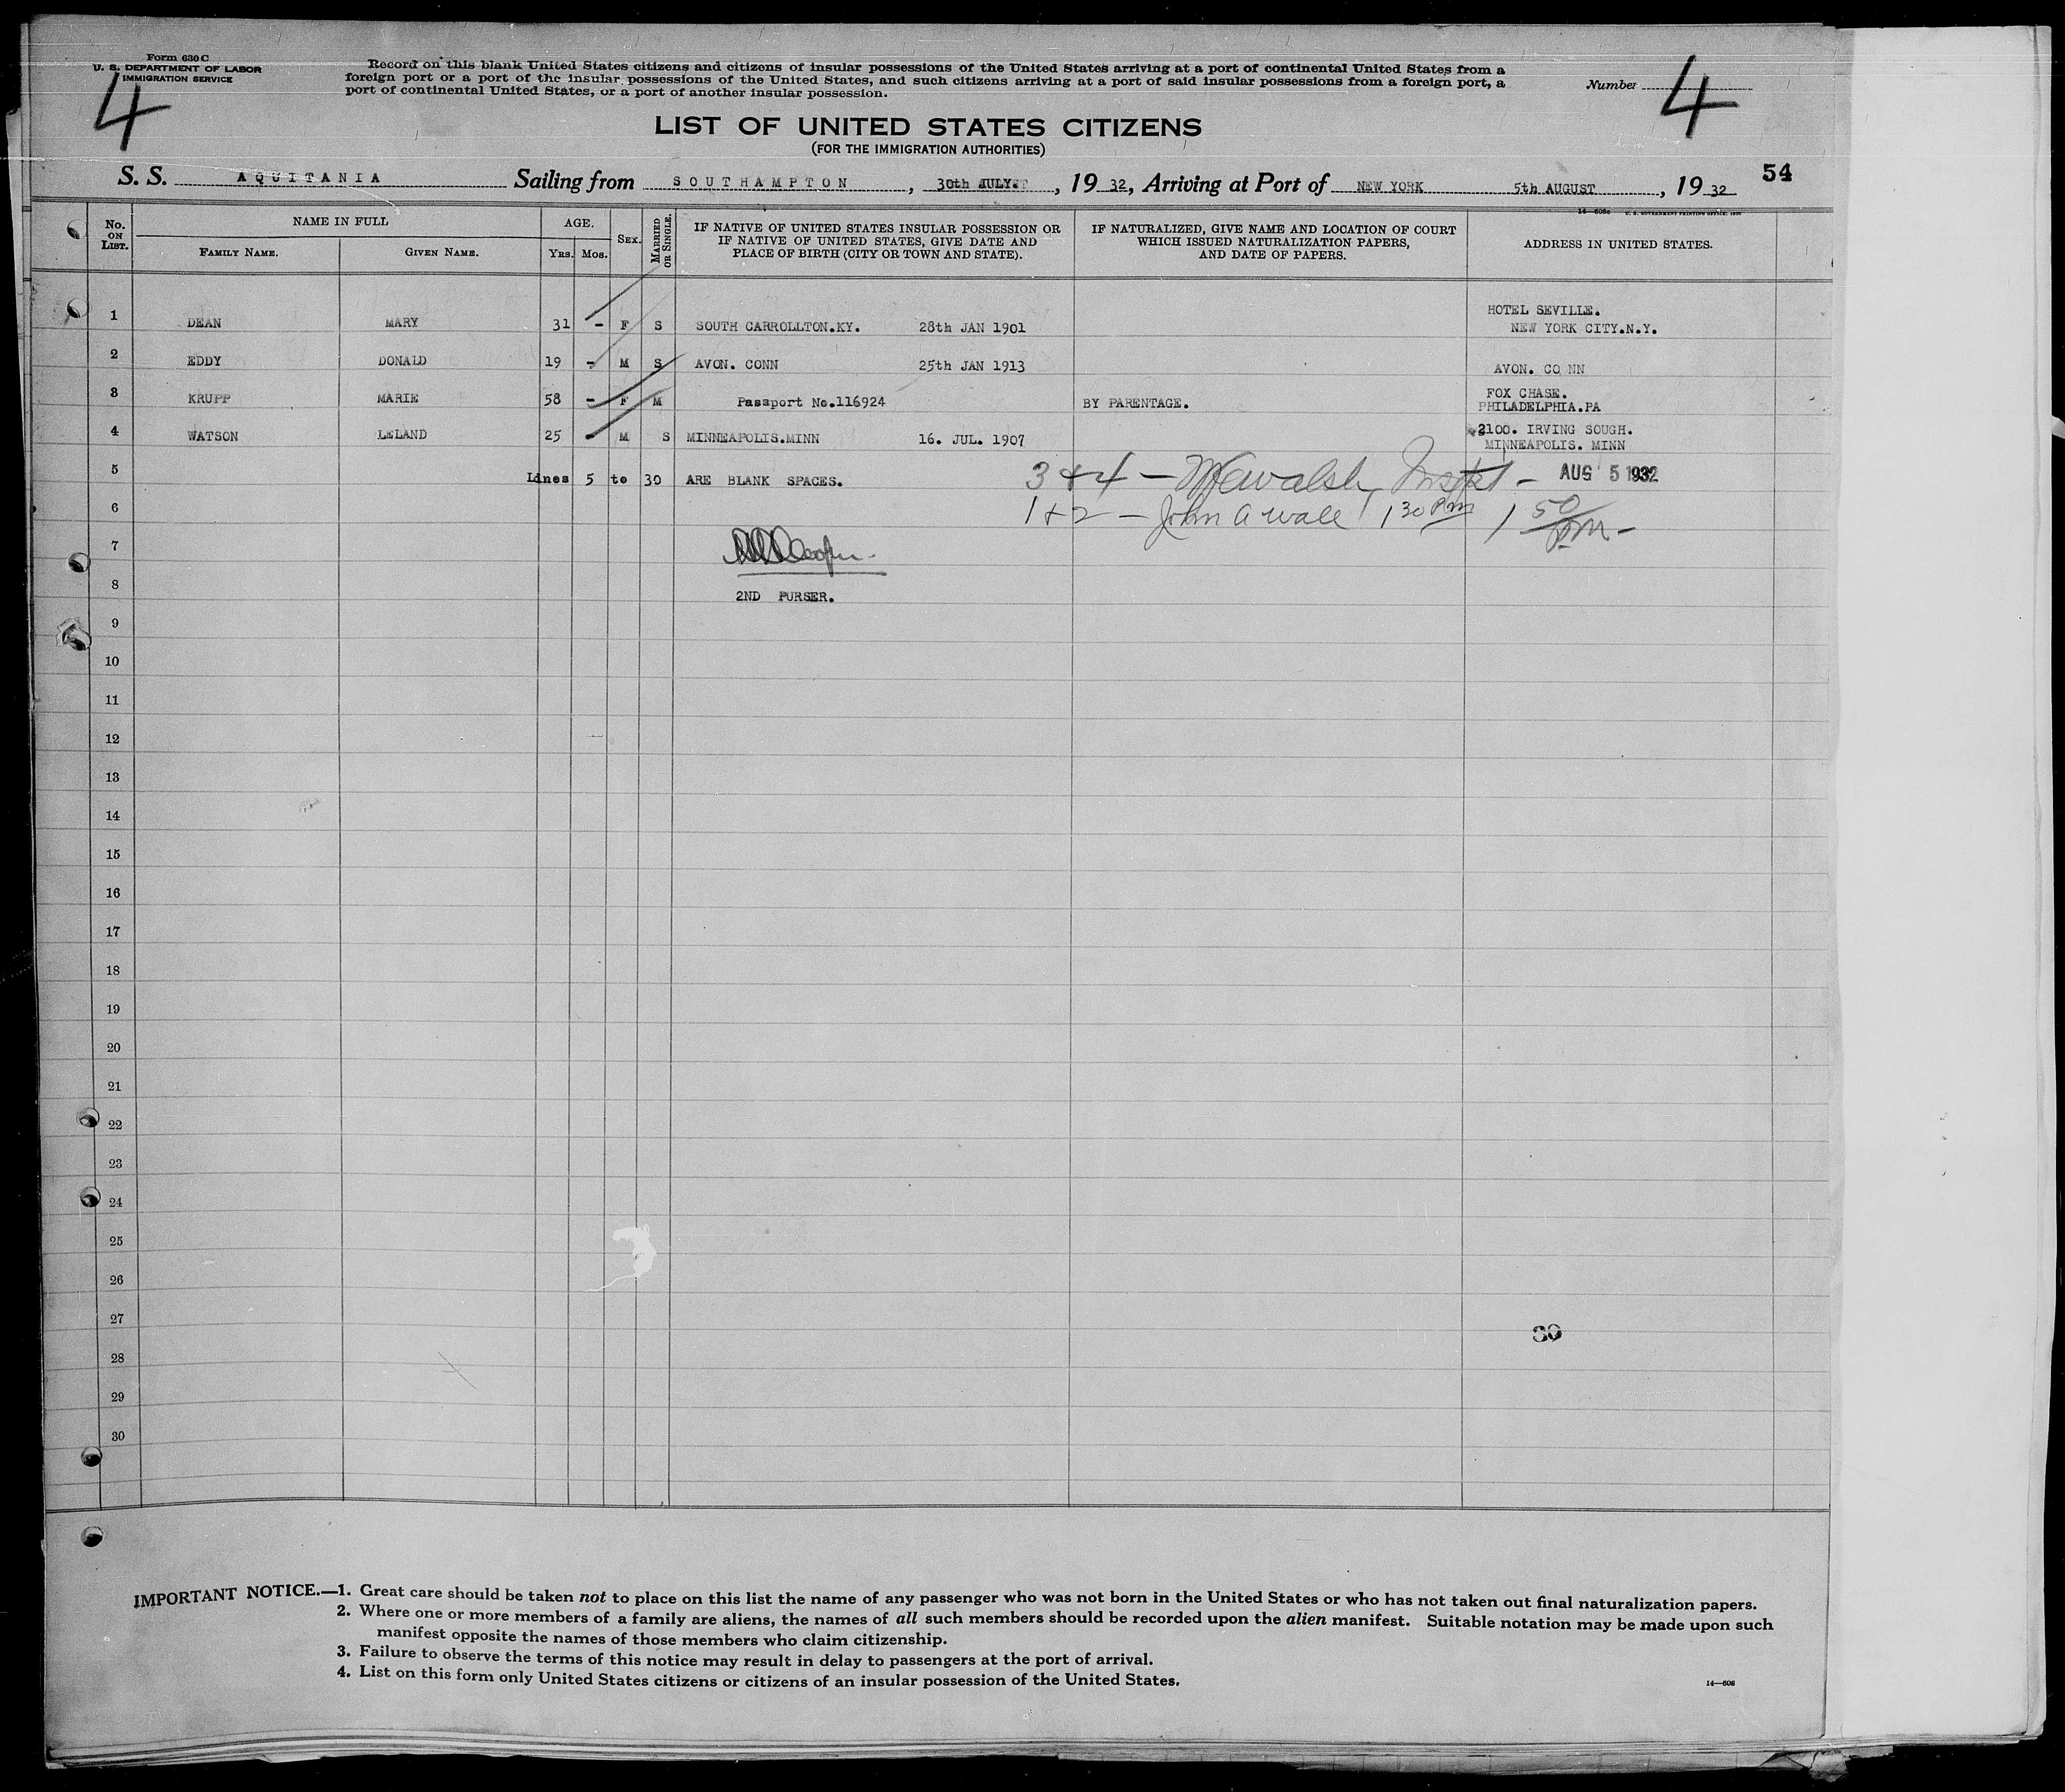 Form 630 C
U. S. DEPARTMENT OF LABOR
IMMIGRATION SERVICE
4
Record on this blank United States citizens and citizens of insular possessions of the United States arriving at a port of continental United States from a
foreign port or a port of the insular possessions of the United States, and such citizens arriving at a port of said insular possessions from a foreign port, a
port of continental United States, or a port of another insular possession.
Number 4
LIST OF UNITED STATES CITIZENS
(FOR THE IMMIGRATION AUTHORITIES)
54
S. S. AQUITANIA Sailing from SOUTHAMPTON, 30th JULY, 19 32, Arriving at Port of NEW YORK 5th AUGUST, 19 32
No. ON LIST. NAME IN FULL AGE. SEX. MARRIED OR SINGLE. IF NATIVE OF UNITED STATES INSULAR POSSESSION OR IF NATIVE OF UNITED STATES, GIVE DATE AND PLACE OF BIRTH (CITY OR TOWN AND STATE). IF NATURALIZED, GIVE NAME AND LOCATION OF COURT WHICH ISSUED NATURALIZATION PAPERS, AND DATE OF PAPERS. ADDRESS IN UNITED STATES.
FAMILY NAME. GIVEN NAME. YRS. MOS.
1 DEAN MARY 31 - F S SOUTH CARROLLTON.KY. 28th JAN 1901 HOTEL SEVILLE. NEW YORK CITY.N.Y.
2 EDDY DONALD 19 - M S AVON. CONN 25th JAN 1913 AVON. CO NN
3 KRUPP MARIE 58 - F M Passport No.116924 BY PARENTAGE. FOX CHASE. PHILADELPHIA.PA
4 WATSON LELAND 25 - M S MINNEAPOLIS.MINN 16. JUL. 1907 2100. IRVING SOUGH. MINNEAPOLIS. MINN
5 Lines 5 to 30 ARE BLANK SPACES. 3+4 - Walsh Inspt - AUG 5 1932
6 1+2 - John A Wall 1 30 PM 1 50 PM -
7
8 2ND PURSER.
9
10
11
12
13
14
15
16
17
18
19
20
21
22
23
24
25
26
27
30
28
29
30
IMPORTANT NOTICE.—1. Great care should be taken not to place on this list the name of any passenger who was not born in the United States or who has not taken out final naturalization papers.
2. Where one or more members of a family are aliens, the names of all such members should be recorded upon the alien manifest. Suitable notation may be made upon such
manifest opposite the names of those members who claim citizenship.
3. Failure to observe the terms of this notice may result in delay to passengers at the port of arrival.
4. List on this form only United States citizens or citizens of an insular possession of the United States.
14—608